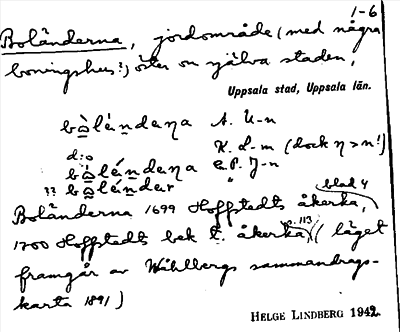 1-6
Boländerna, jordområde (med några
boningshus!) öster om själva staden,
Uppsala stad, Uppsala län.
bòléndeɳa A. U-n
K. L-m (dock ɳ > n!)
d:o
bólénd​eɳa C.P. J-n
?? bòléndar "
blad 4
Boländerna 1699 Hoffstedts åkerka,
s. 113
1700 Hoffstedts bek t. åkerka, (läget
framgår av Wåhlbergs sammandrags-
karta 1891)
HELGE LINDBERG 1942.